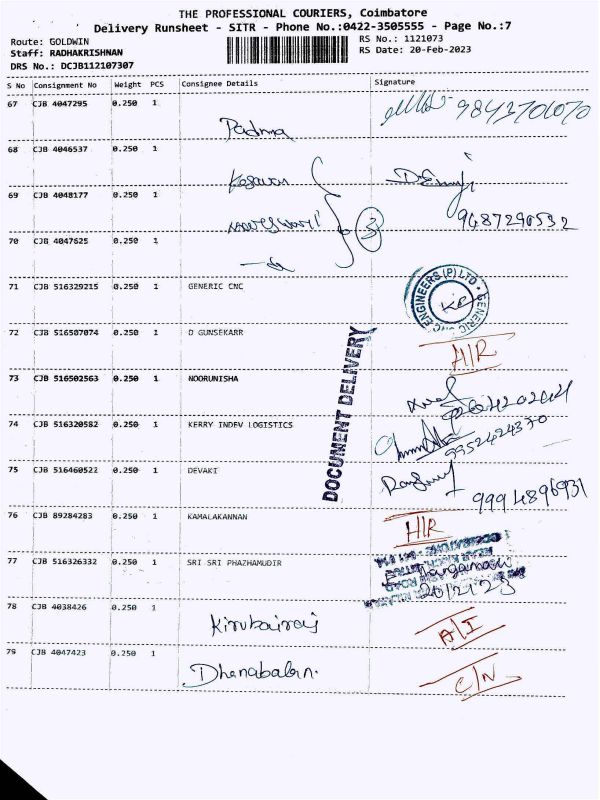 THE PROFESSIONAL COURIERS, Coimbatore
Delivery Runsheet - SITR - Phone No.:0422-3505555 - Page No.:7
Route: GOLDWIN RS No.: 1121073
Staff: RADHAKRISHNAN RS Date: 20-Feb-2023
DRS No.: DCJB112107307
S No Consignment No Weight PCS Consignee Details Signature
67 CJB 4047295 0.250 1 Padma 9843701070
68 CJB 4046537 0.250 1 Kesavan
69 CJB 4048177 0.250 1 3 9487290532
70 CJB 4047625 0.250 1
71 CJB 516329215 0.250 1 GENERIC CNC ENGINEERS (P) LTD * GENERIC CNC
72 CJB 516507074 0.250 1 D GUNSEKARR H/R
73 CJB 516502563 0.250 1 NOORUNISHA
74 CJB 516320582 0.250 1 KERRY INDEV LOGISTICS 9952424370
75 CJB 516460522 0.250 1 DEVAKI 9994896931
DOCUMENT DELIVERY
76 CJB 89284283 0.250 1 KAMALAKANNAN H/R
77 CJB 516326332 0.250 1 SRI SRI PHAZHAMUDIR 20/2/23
78 CJB 4038426 0.250 1 Kirubairaj A/I
79 CJB 4047423 0.250 1 Dhanabalan. C/N